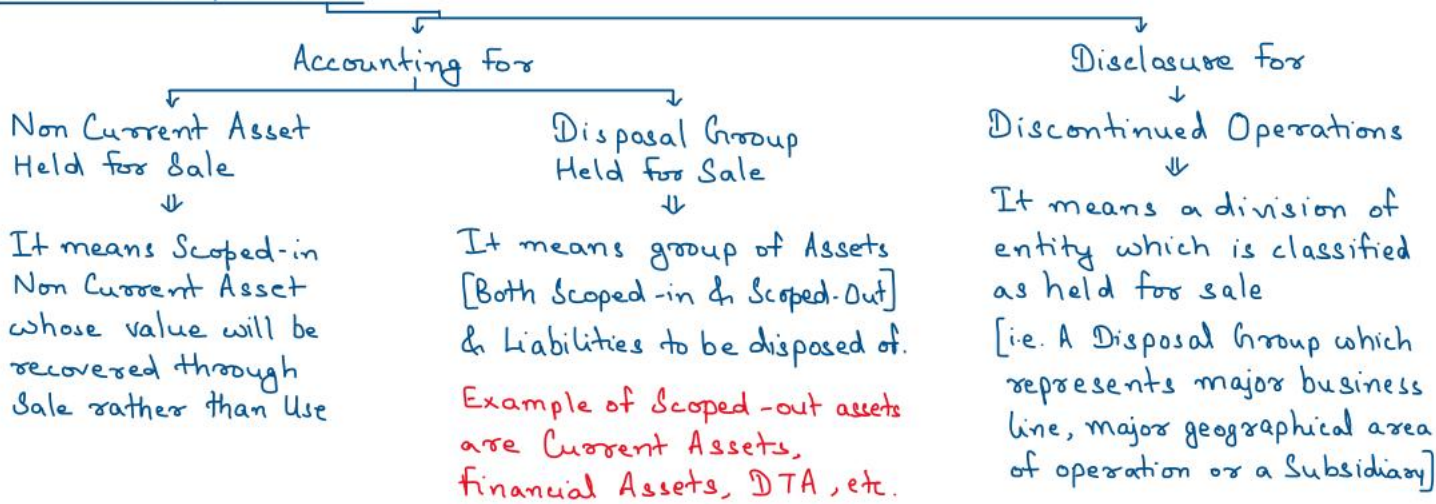 Accounting for
Non Current Asset
Held for Sale
⇓
It means Scoped-in
Non Current Asset
whose value will be
recovered through
Sale rather than Use
Disposal Group
Held for Sale
⇓
It means group of Assets
[Both Scoped-in & Scoped-Out]
& Liabilities to be disposed of.
Example of Scoped-out assets
are Current Assets,
Financial Assets, DTA, etc.
Disclosure for
Discontinued Operations
⇓
It means a division of
entity which is classified
as held for sale
[i.e. A Disposal Group which
represents major business
line, major geographical area
of operation or a Subsidiary]